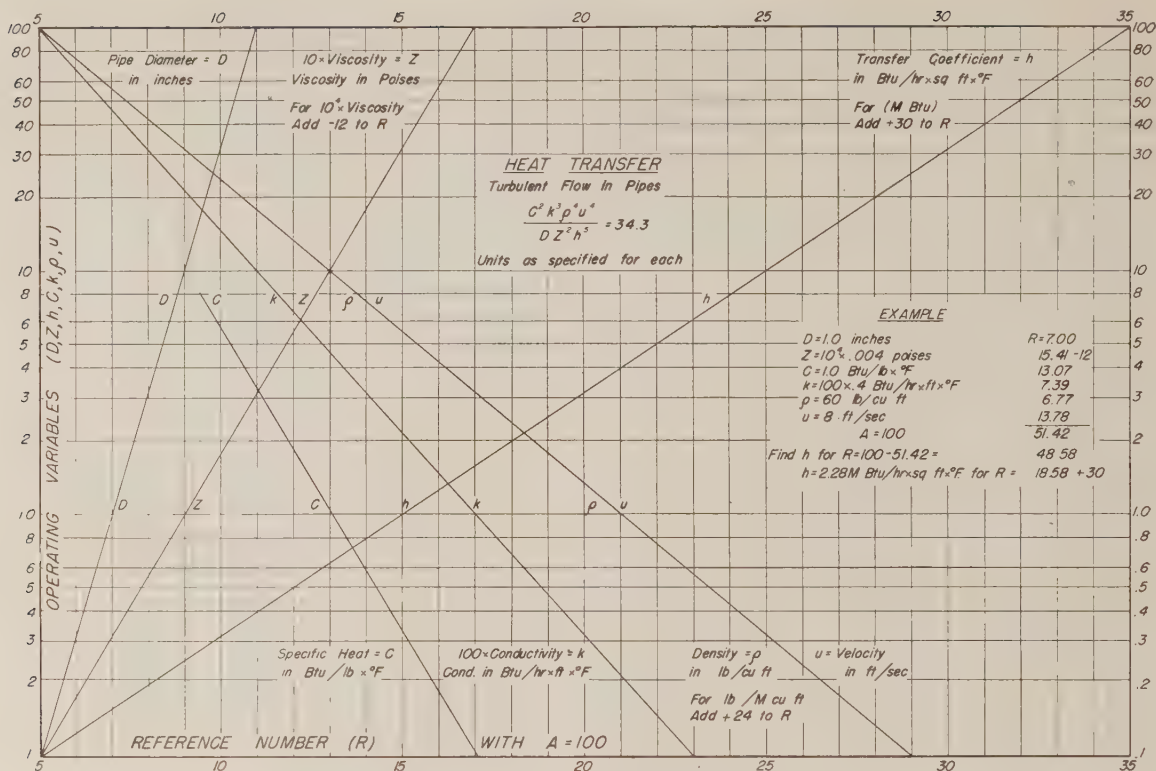 5 10 15 20 25 30 35
100 100
80 80
60 60
50 50
40 40
30 30
20 20
10 10
8 8
6 6
5 5
4 4
3 3
2 2
1.0 1.0
.8 .8
.6 .6
.5 .5
.4 .4
.3 .3
.2 .2
.1 .1
OPERATING VARIABLES (D,Z,h,C,k,ρ,u)
Pipe Diameter = D
in inches
10×Viscosity = Z
Viscosity in Poises
For 10⁴×Viscosity
Add -12 to R
Transfer Coefficient = h
in Btu/hr×sq ft×°F
For (M Btu)
Add +30 to R
HEAT TRANSFER
Turbulent Flow In Pipes
C² k³ ρ⁴ u⁴
D Z² h⁵
= 34.3
Units as specified for each
D C k Z ρ u h
EXAMPLE
D=1.0 inches R=7.00
Z=10⁴×.004 poises 15.41-12
C=1.0 Btu/lb×°F 13.07
k=100×.4 Btu/hr×ft×°F 7.39
ρ=60 lb/cu ft 6.77
u=8 ft/sec 13.78
A=100 51.42
Find h for R=100-51.42= 48.58
h=2.28M Btu/hr×sq ft×°F for R= 18.58 +30
D Z C h k ρ u
Specific Heat = C
in Btu/lb×°F
100×Conductivity = k
Cond. in Btu/hr×ft×°F
Density = ρ
in lb/cu ft
For lb/M cu ft
Add +24 to R
u = Velocity
in ft/sec
REFERENCE NUMBER (R) WITH A=100
5 10 15 20 25 30 35